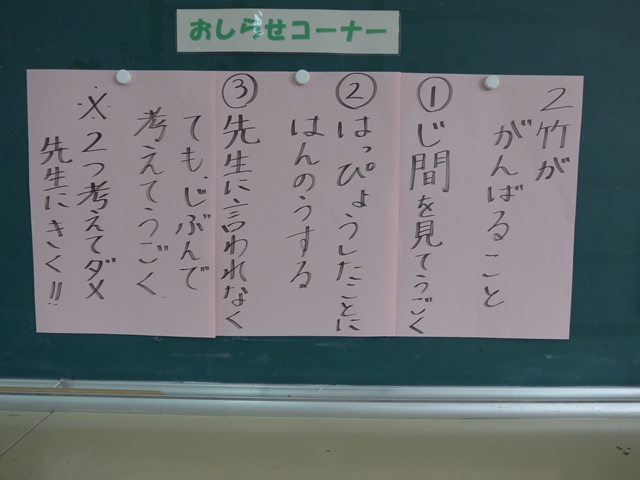 おしらせコーナー
2竹が
がんばること
①じ間を見てうごく
②はっぴょうしたことに
はんのうする
③先生に言われなく
ても、じぶんで
考えてうごく
※2つ考えてダメ
先生にきく!!